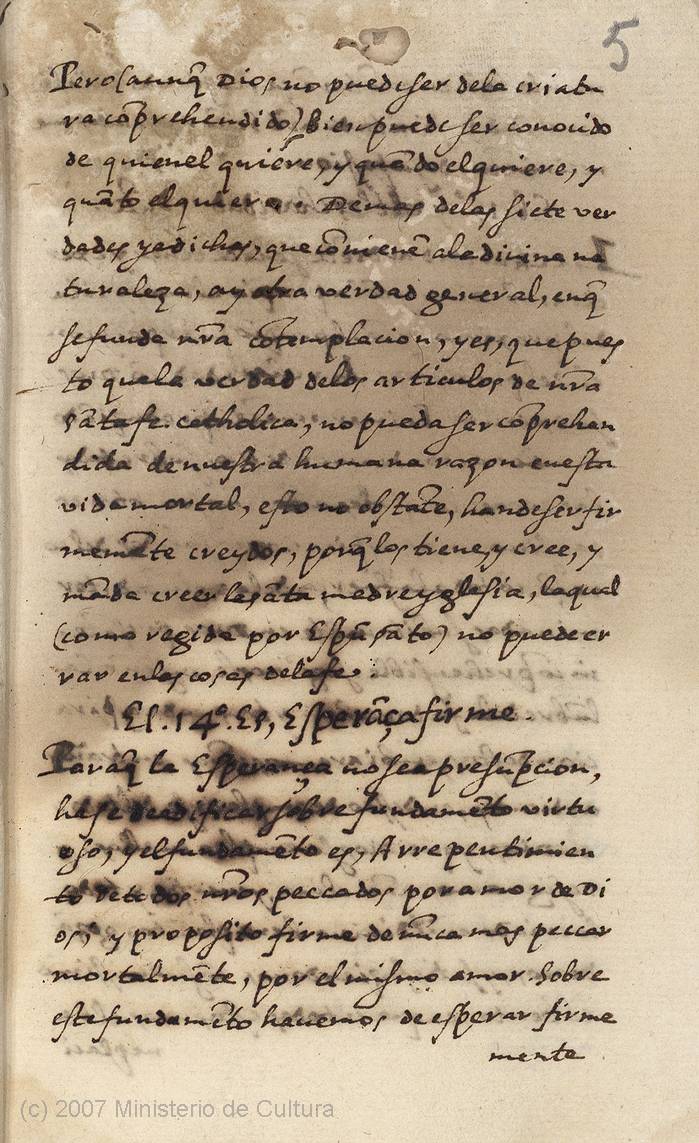 5
Pero (aunq̃ Dios no puede ser dela criatu
ra cõprehendido) bien puede ser conocido
de quien el quiere, y quãdo el quiere, y
quãto el quiere. Demas delas siete ver
dades ya dichas, que cõvienẽ ala divina na
turaleza, ay otra verdad general, enq̃
se funda nr̃a cõtemplacion, y es, que pues
to que la verdad delos articulos de nr̃a
sãta fe catholica, no pueda ser cõprehen
dida de nuestra humana razon en esta
vida mortal, esto no obstãte, han de ser fir
memẽte creydos, porq̃ los tiene, y cree, y
mãda creer la sãta madre yglesia, la qual
(como regida por Espũ sãto) no puede er
rar en las cosas dela fe.
El. 14º. Es, Esperãça firme.
Paraq̃ la Esperança no sea presũpcion,
hase de edificar sobre fundamẽto virtu
oso, y el fundamẽto es, Arrepentimien
to de todos nr̃os peccados por amor de Di
os, y proposito firme de nũca mas peccar
mortalmẽte, por el mismo amor. Sobre
este fundamẽto havemos de esperar firme
mente
(c) 2007 Ministerio de Cultura